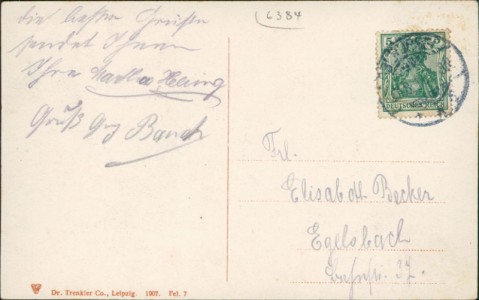 die besten Grüßen
sendet Ihnen
Ihre Martha
Gruß Bauch
6384
5
DEUTSCHES REICH
Frl.
Elisabeth Becker
Egelsbach
Bahnstr. 37.
Dr. Trenkler Co., Leipzig. 1907. Fel. 7